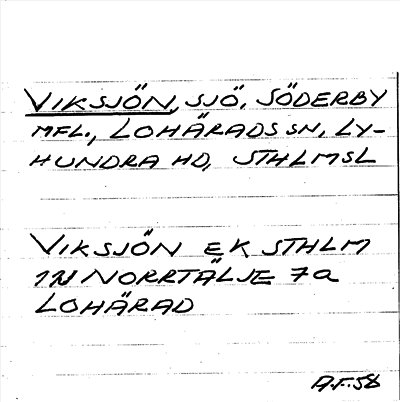 VIKSJÖN, SJÖ, SÖDERBY
MFL., LOHÄRADS SN, LY-
HUNDRA HD, STHLMSL
VIKSJÖN EK STHLM
1N NORRTÄLJE 7a
LOHÄRAD
A.F.58